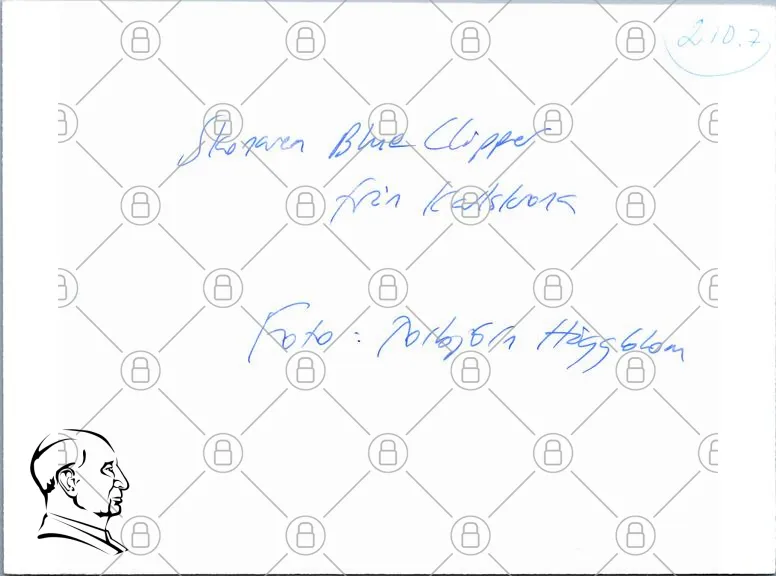 210.7
Skonaren Blue Clipper
från Karlskrona
Foto: Torbjörn Häggblom